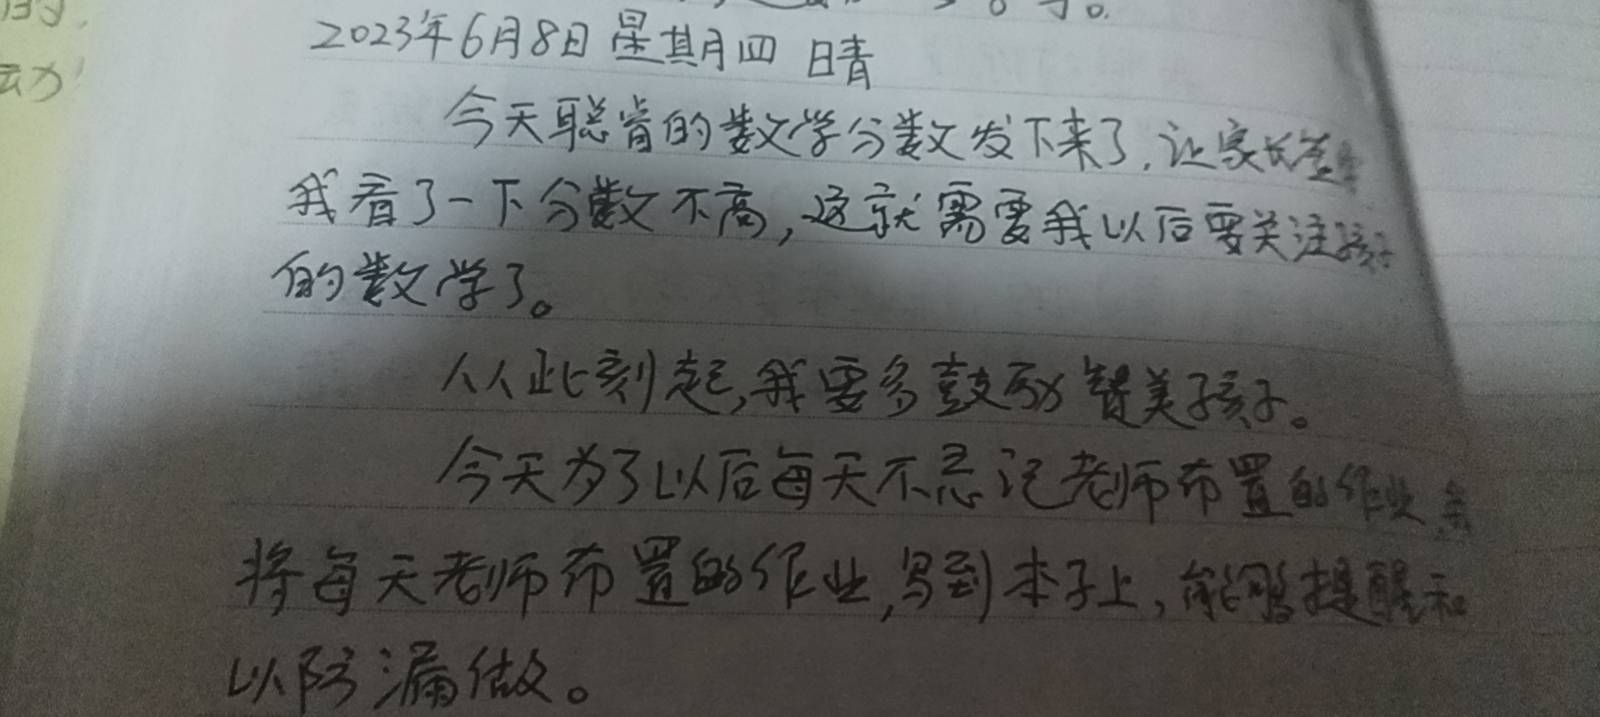 2023年6月8日 星期四 晴
今天聪肯的数学分数发下来了,让家长签
我看了一下分数不高,这就需要我以后要关注孩子
的数学了。
从此刻起,我要多鼓励赞美孩子。
今天为了以后每天不忘记老师布置的作业,
将每天老师布置的作业,写到本子上,能够提醒和
以防漏做。